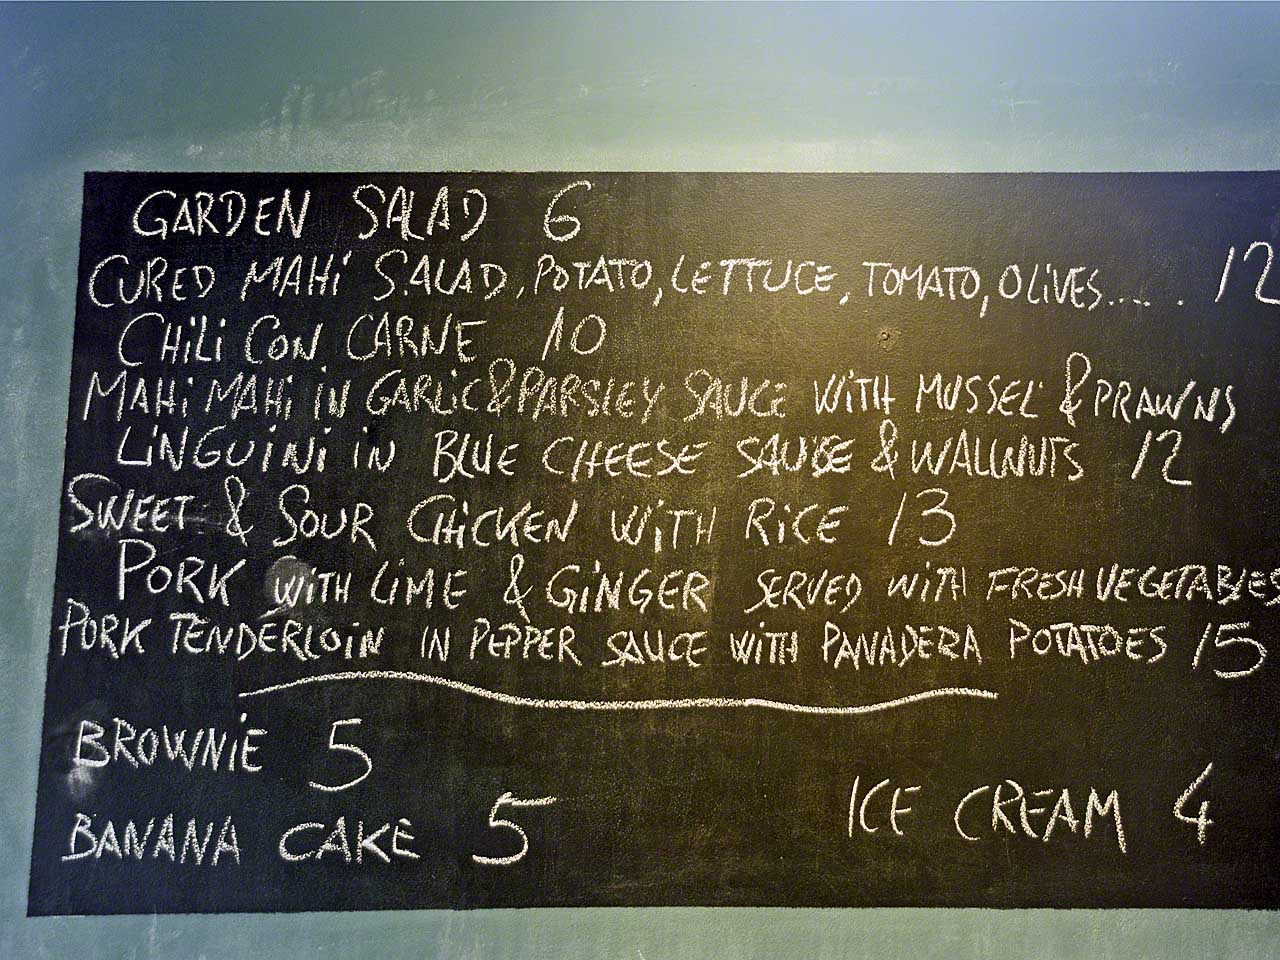 GARDEN SALAD 6
CURED MAHI SALAD, POTATO, LETTUCE, TOMATO, OLIVES..... 12
CHILI CON CARNE 10
MAHI MAHI IN GARLIC & PARSLEY SAUCE WITH MUSSEL & PRAWNS
LINGUINI IN BLUE CHEESE SAUCE & WALLNUTS 12
SWEET & SOUR CHICKEN WITH RICE 13
PORK WITH LIME & GINGER SERVED WITH FRESH VEGETABLES
PORK TENDERLOIN IN PEPPER SAUCE WITH PANADERA POTATOES 15
BROWNIE 5
ICE CREAM 4
BANANA CAKE 5